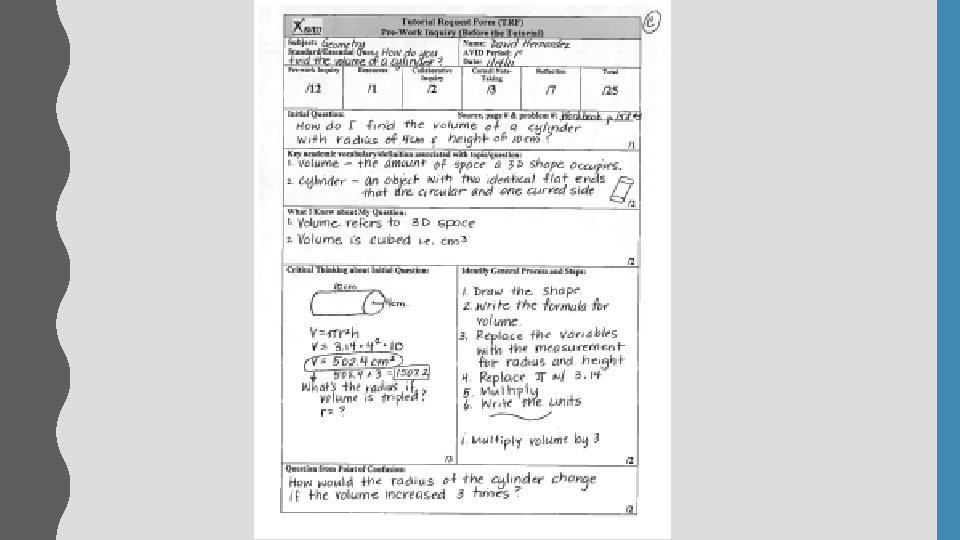 AVID
Tutorial Request Form (TRF)
Pre-Work Inquiry (Before the Tutorial)
Subject: Geometry
Name: David Hernandez
Standard/Essential Ques.: How do you
find the volume of a cylinder?
AVID Period:
Date:
Pre-work Inquiry
Resources
Collaborative
Inquiry
Cornell Note-
Taking
Reflection
Total
/12
/1
/2
/3
/7
/25
Initial Question:
Source, page # & problem #: Workbook p.
How do I find the volume of a cylinder
with radius of 4cm & height of 10cm?
/1
Key academic vocabulary/definition associated with topic/question:
1. Volume - the amount of space a 3D shape occupies.
2. Cylinder - an object with two identical flat ends
that are circular and one curved side
/2
What I Know about My Question:
1. Volume refers to 3D space
2. Volume is cubed i.e. cm³
/2
Critical Thinking about Initial Question:
10cm
4cm
V=πr²h
V= 3.14 · 4² · 10
V= 502.4 cm³
502.4 × 3 =
What's the radius if
volume is tripled?
r= ?
/3
Identify General Process and Steps:
1. Draw the shape
2. Write the formula for
volume.
3. Replace the variables
with the measurement
for radius and height
4. Replace π w/ 3.14
5. Multiply
6. Write the units
1. Multiply volume by 3
/2
Question from Point of Confusion:
How would the radius of the cylinder change
if the volume increased 3 times?
/2